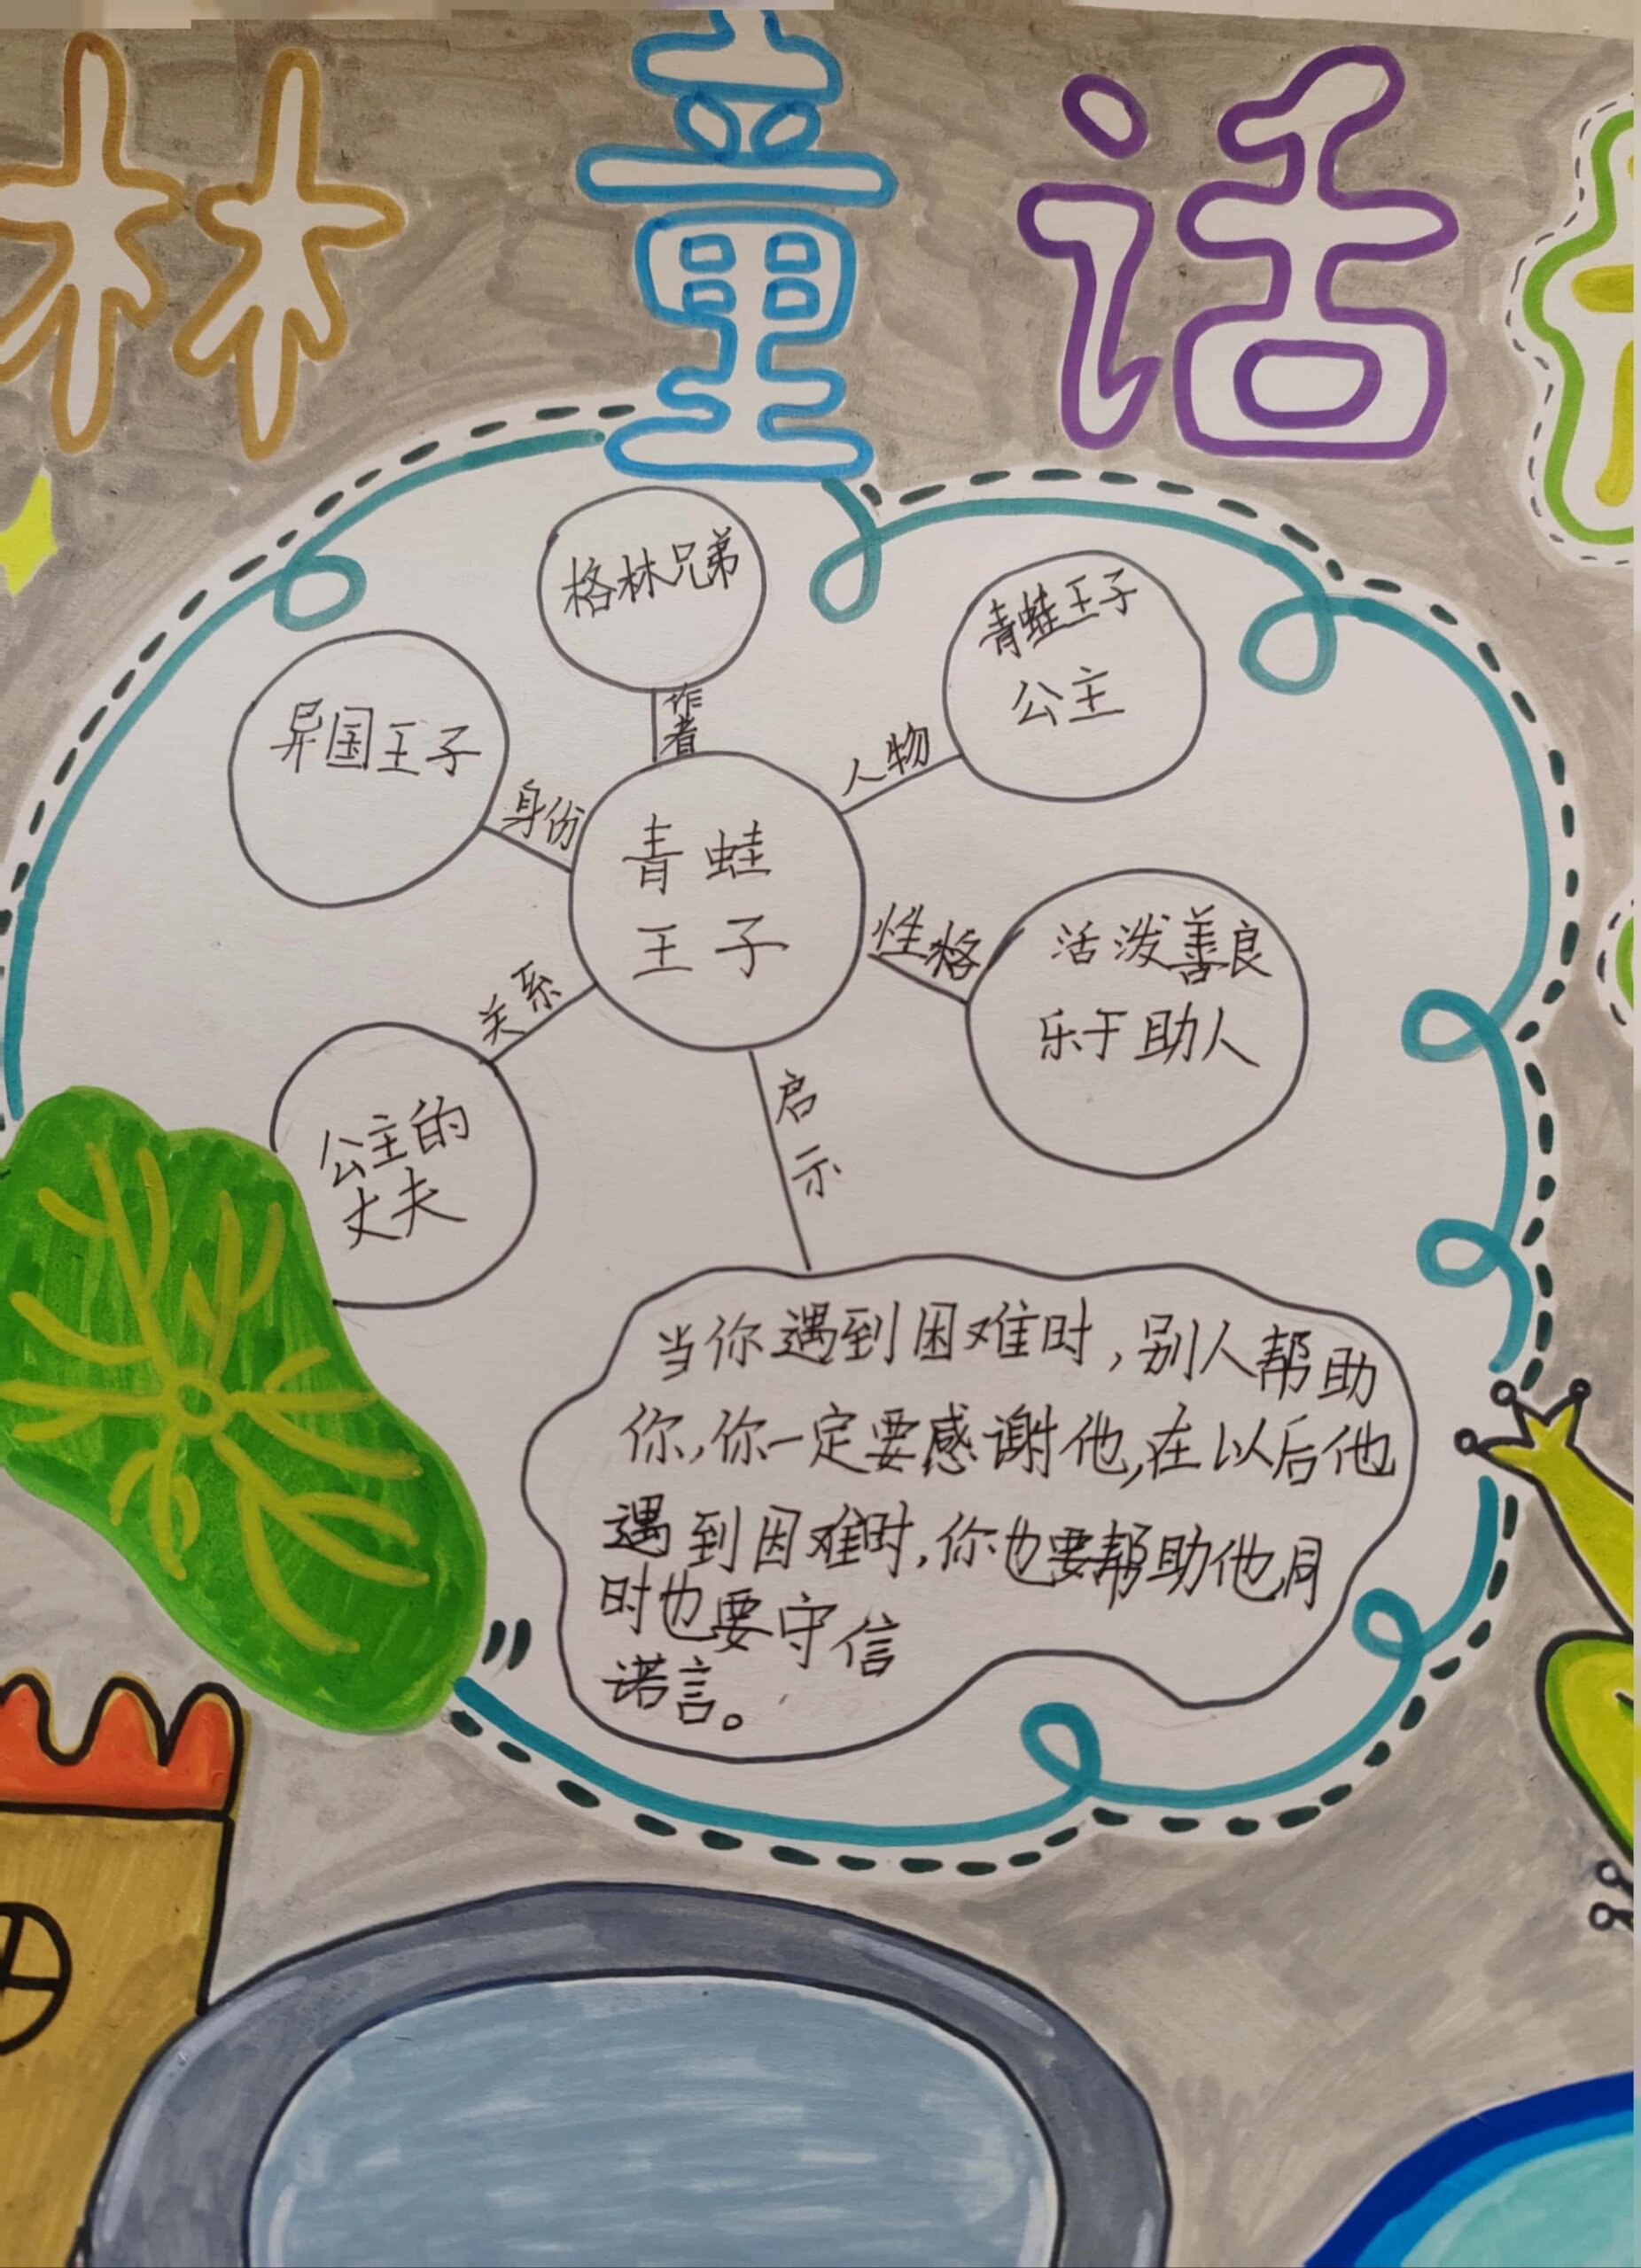 林童话
格林兄弟
作者
青蛙王子
公主
人物
异国王子
身份
青蛙
王子
性格
活泼善良
乐于助人
关系
公主的
丈夫
启示
当你遇到困难时,别人帮助
你,你一定要感谢他,在以后他
遇到困难时,你也要帮助他,同
时也要守信
诺言。